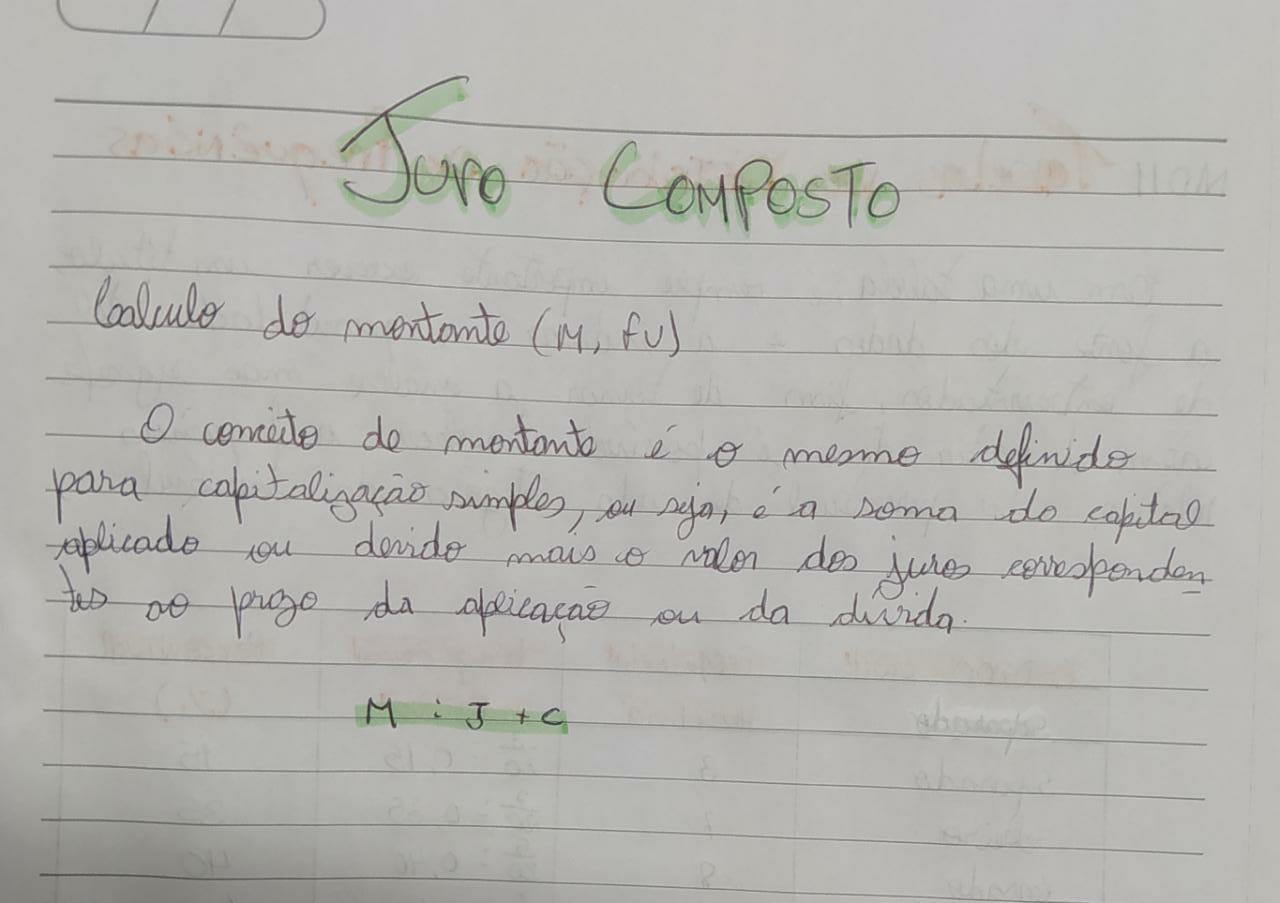 Juro Composto
Calculo do montante (M, fv)
O conceito de montante é o mesmo definido
para capitalização simples, ou seja, é a soma do capital
aplicado ou devido mais o valor dos juros corresponden
tes ao prazo da aplicação ou da divida.
M : J + C